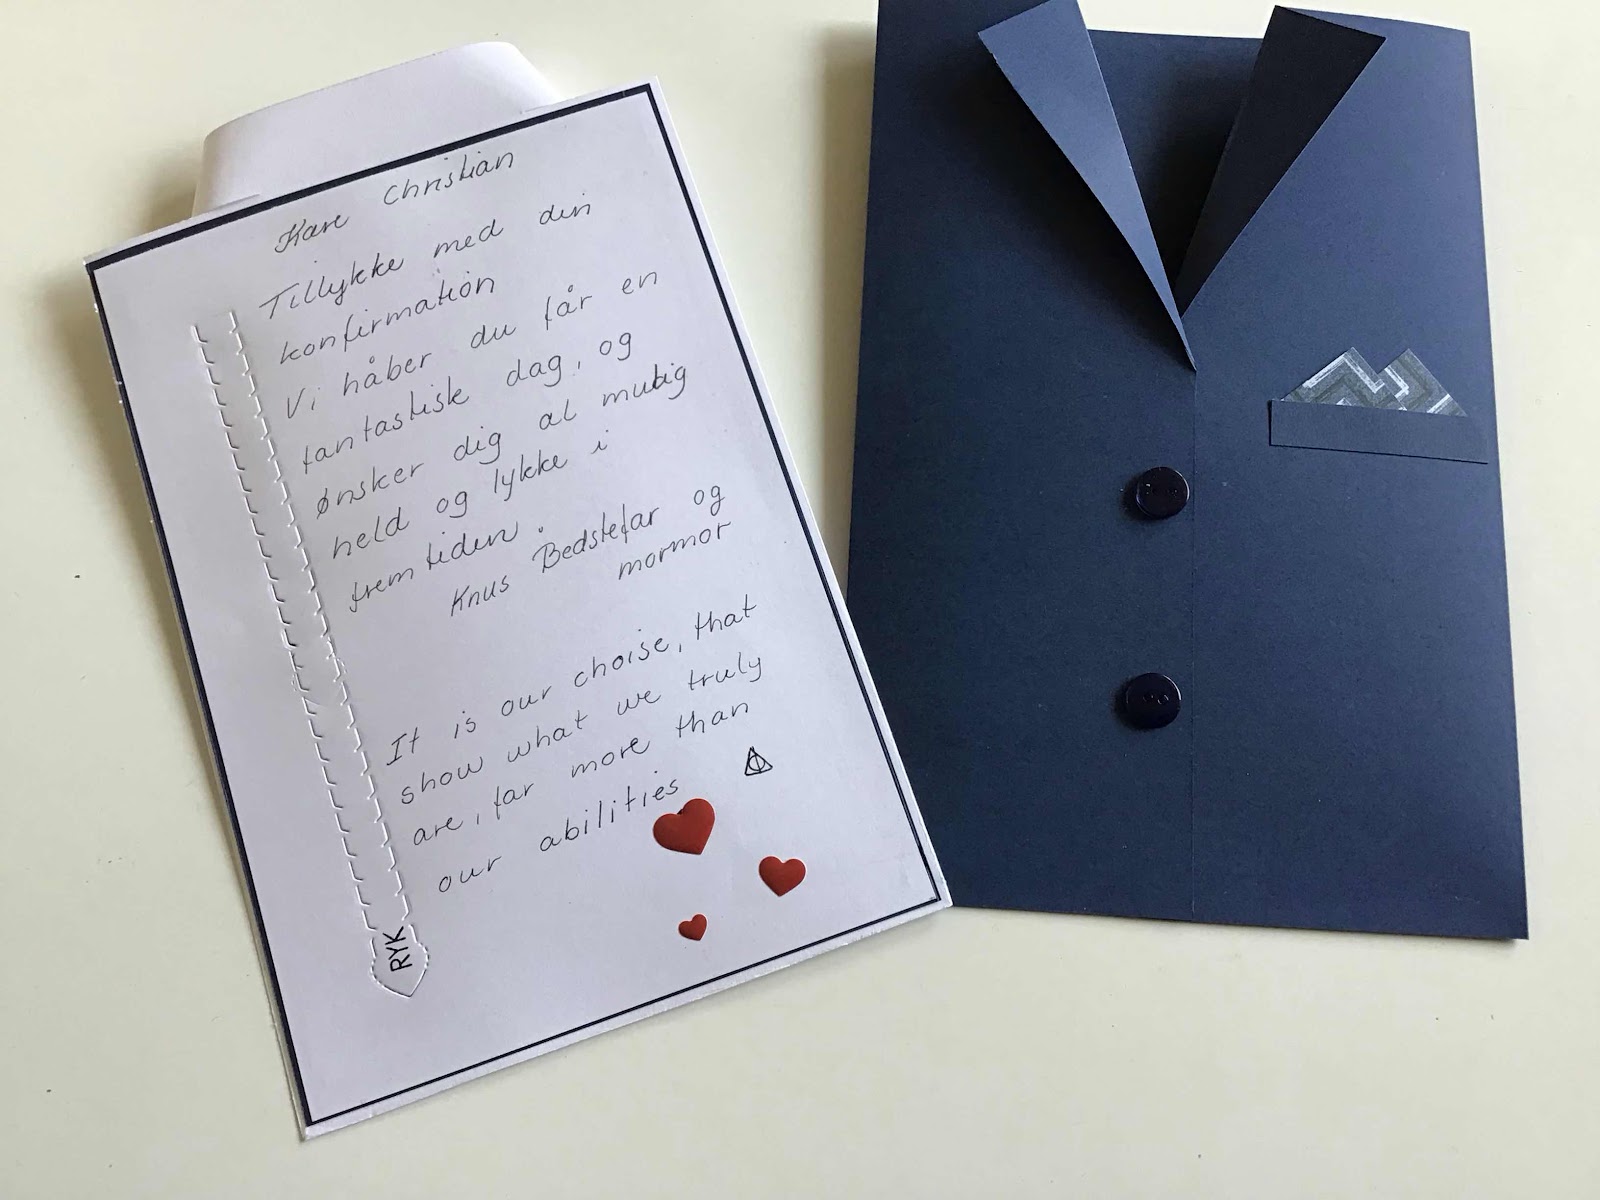 Kære Christian
Tillykke med din
konfirmation
Vi håber du får en
fantastisk dag, og
ønsker dig al mulig
held og lykke i
fremtiden.
Knus Bedstefar og
mormor
It is our choise, that
show what we truly
are, far more than
our abilities
RYK